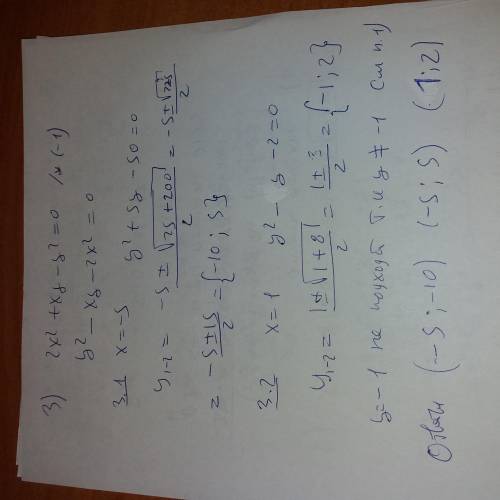 3) 2x² + xy - y² = 0 /*(-1)
y² - xy - 2x² = 0
3.1 x = -5 y² + 5y - 50 = 0
y₁₋₂ = (-5 ± √(25 + 200))/2 = (-5 ± √225)/2
= (-5 ± 15)/2 = {-10 ; 5}
3.2 x = 1 y² - y - 2 = 0
y₁₋₂ = (1 ± √(1 + 8))/2 = (1 ± 3)/2 = {-1 ; 2}
y = -1 не подходит т.к y ≠ -1 см п.1)
Ответ (-5 ; -10) (-5 ; 5) (1 ; 2)